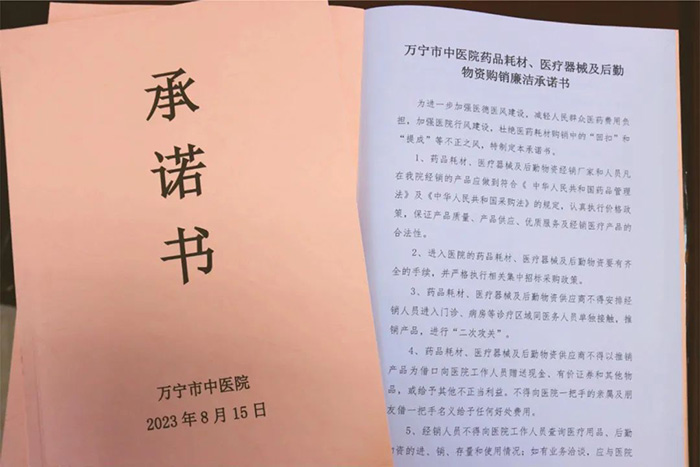 承
诺
书
万宁市中医院
2023年8月15日
万宁市中医院药品耗材、医疗器械及后勤
物资购销廉洁承诺书
为进一步加强医德医风建设，减轻人民群众医药费用负
担，加强医院行风建设，杜绝医药耗材购销中的“回扣”和
“提成”等不正之风，特制定本承诺书。
1、药品耗材、医疗器械及后勤物资经销厂家和人员凡
在我院经销的产品应做到符合《中华人民共和国药品管理
法》及《中华人民共和国采购法》的规定，认真执行价格政
策，保证产品质量、产品供应、优质服务及经销医疗产品的
合法性。
2、进入医院的药品耗材、医疗器械及后勤物资要有齐
全的手续，并严格执行相关集中招标采购政策。
3、药品耗材、医疗器械及后勤物资供应商不得安排经
销人员进入门诊、病房等诊疗区域同医务人员单独接触，推
销产品，进行“二次攻关”。
4、药品耗材、医疗器械及后勤物资供应商不得以推销
产品为借口向医院工作人员赠送现金、有价证券和其他物
品，或给予其他不正当利益。不得向医院一把手的亲属及朋
友借一把手名义给于任何好处费用。
5、经销人员不得向医院工作人员查询医疗用品、后勤
物资的进、销、存量和使用情况；如有业务洽谈，应与医院